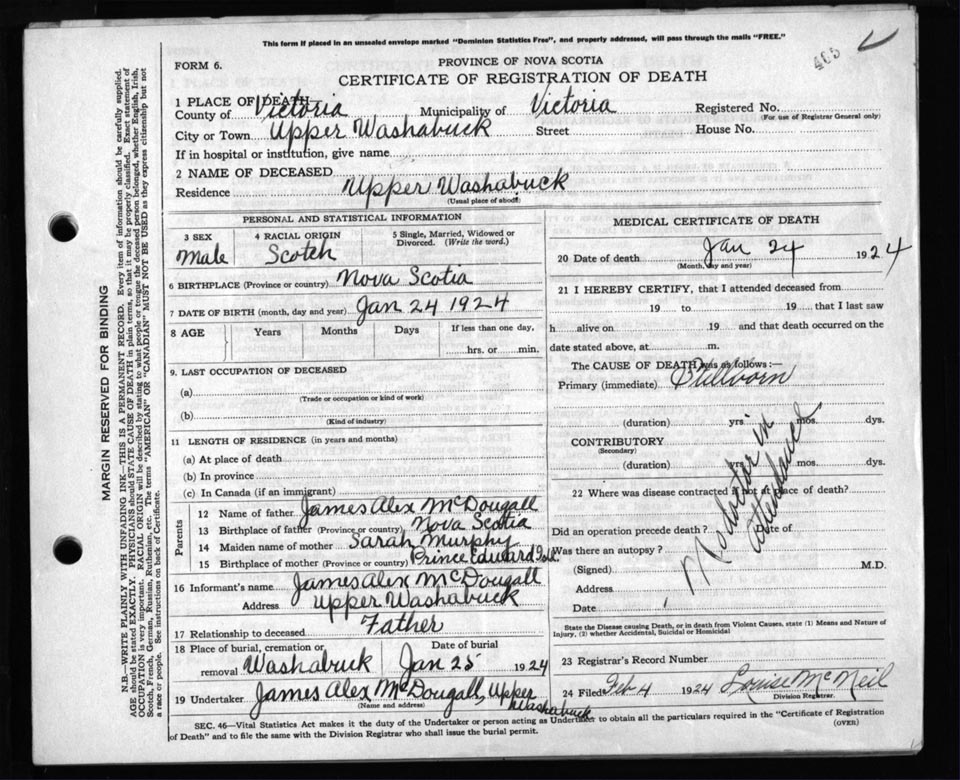 This form if placed in an unsealed envelope marked "Dominion Statistics Free", and properly addressed, will pass through the mails "FREE."
465
FORM 6.
PROVINCE OF NOVA SCOTIA
CERTIFICATE OF REGISTRATION OF DEATH
1 PLACE OF DEATH—
County of Victoria Municipality of Victoria Registered No.
(For use of Registrar General only)
City or Town Upper Washabuck Street House No.
If in hospital or institution, give name
2 NAME OF DECEASED
Residence Upper Washabuck
(Usual place of abode)
PERSONAL AND STATISTICAL INFORMATION
3 SEX
Male
4 RACIAL ORIGIN
Scotch
5 Single, Married, Widowed or
Divorced. (Write the word.)
6 BIRTHPLACE (Province or country) Nova Scotia
7 DATE OF BIRTH (month, day and year) Jan 24 1924
8 AGE Years Months Days If less than one day,
hrs. or min.
9. LAST OCCUPATION OF DECEASED
(a)
(Trade or occupation or kind of work)
(b)
(Kind of industry)
11 LENGTH OF RESIDENCE (in years and months)
(a) At place of death
(b) In province
(c) In Canada (if an immigrant)
Parents
12 Name of father James Alex McDougall
13 Birthplace of father (Province or country) Nova Scotia
14 Maiden name of mother Sarah Murphy
15 Birthplace of mother (Province or country) Prince Edward Isle
16 Informant's name James Alex McDougall
Address Upper Washabuck
17 Relationship to deceased Father
18 Place of burial, cremation or
removal Washabuck
Date of burial
Jan 25 1924
19 Undertaker James Alex McDougall, Upper
Washabuck
(Name and address)
MEDICAL CERTIFICATE OF DEATH
20 Date of death Jan 24 1924
(Month, day and year)
21 I HEREBY CERTIFY, that I attended deceased from
19 to 19 that I last saw
h alive on 19 and that death occurred on the
date stated above, at m.
The CAUSE OF DEATH was as follows:—
Primary (immediate) Stillborn
(duration) yrs. mos. dys.
CONTRIBUTORY
(Secondary)
(duration) yrs. mos. dys.
22 Where was disease contracted if not at place of death?
Did an operation precede death? Date of
Was there an autopsy?
(Signed) M.D.
Address
Date
No doctor in
attendance
State the Disease causing Death, or in death from Violent Causes, state (1) Means and Nature of
Injury, (2) whether Accidental, Suicidal or Homicidal
23 Registrar's Record Number
24 Filed Feb 4 1924 Louise McNeil
Division Registrar.
SEC. 46—Vital Statistics Act makes it the duty of the Undertaker or person acting as Undertaker to obtain all the particulars required in the "Certificate of Registration
of Death" and to file the same with the Division Registrar who shall issue the burial permit.
(OVER)
MARGIN RESERVED FOR BINDING
N.B.—WRITE PLAINLY WITH UNFADING INK—THIS IS A PERMANENT RECORD. Every item of information should be carefully supplied.
AGE should be stated EXACTLY. PHYSICIANS should STATE CAUSE OF DEATH in plain terms, so that it may be properly classified. Exact statement of
OCCUPATION is very important. RACIAL ORIGIN will be described by stating to what people or tongue the deceased person belonged, whether English, Irish,
Scotch, French, German, Russian, Ruthenian, etc. The terms "AMERICAN" OR "CANADIAN" MUST NOT BE USED as they express citizenship but not
a race or people. See instructions on back of Certificate.